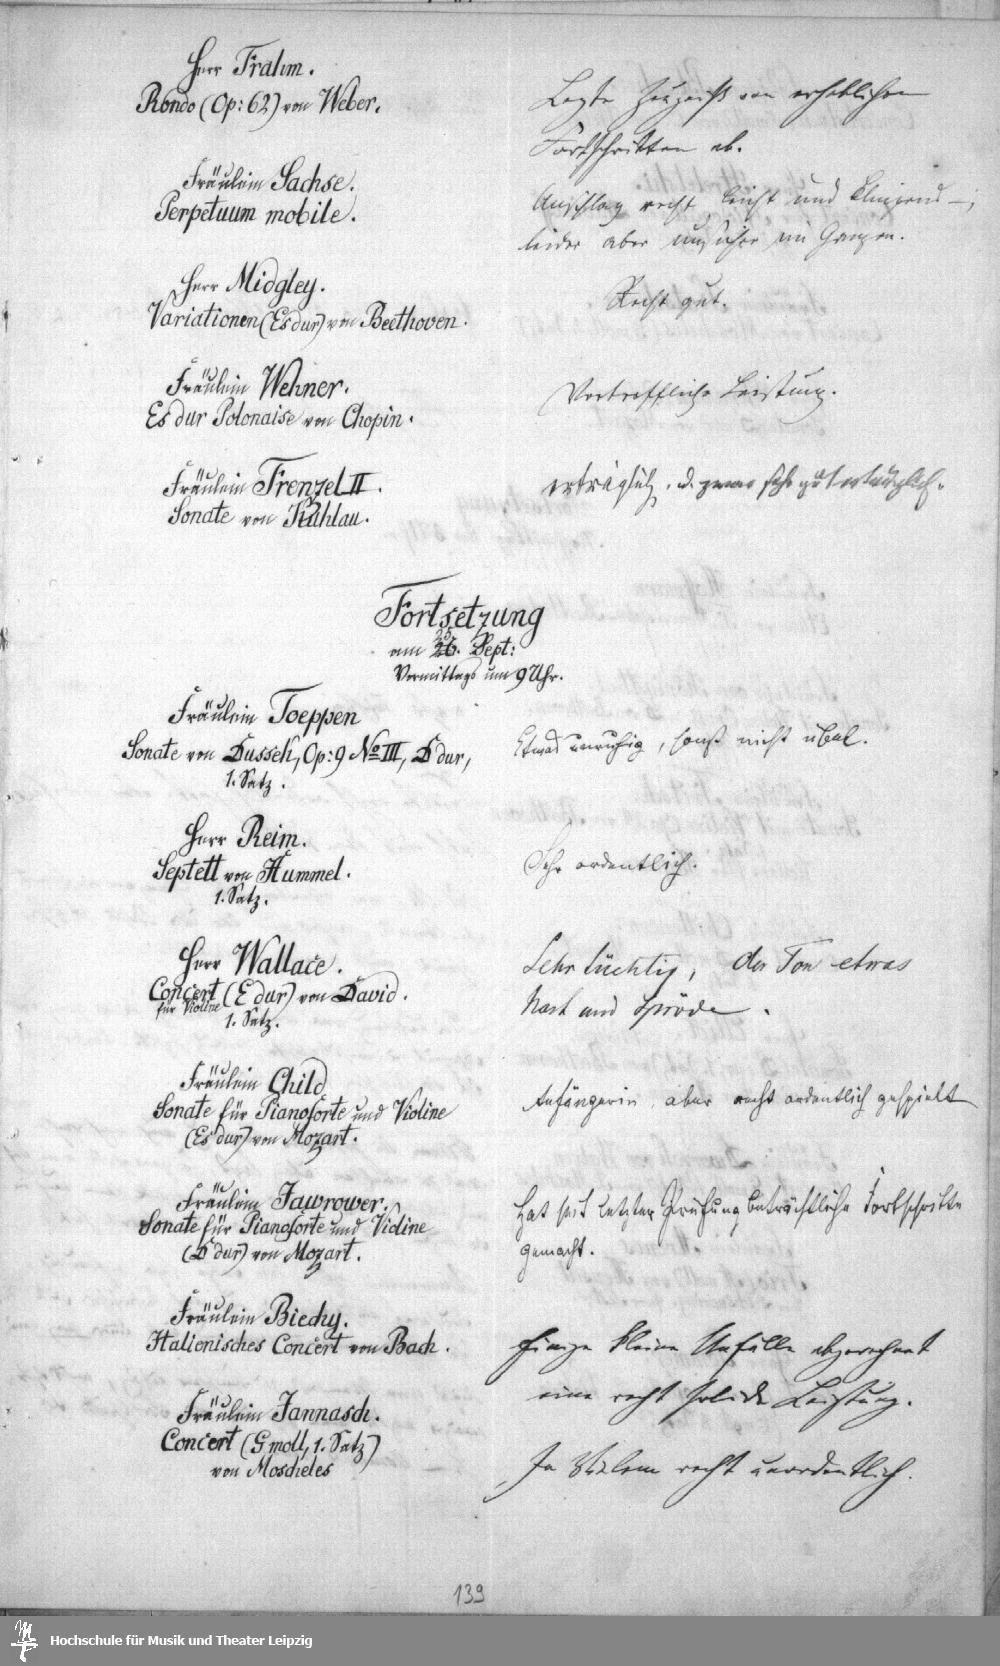 Herr Frahm.
Rondo (Op: 62) von Weber.
Legte Zeugniß von erheblichen
Fortschritten ab.
Fräulein Sachse.
Perpetuum mobile.
Anschlag recht leicht und klingend –;
leider aber unsicher im Ganzen.
Herr Midgley.
Variationen (Es dur) von Beethoven.
Recht gut.
Fräulein Wehner.
Es dur Polonaise von Chopin.
Vortreffliche Leistung.
Fräulein Frenzel II.
Sonate von Kuhlau.
erträglich, u. zwar sehr gut
Fortsetzung
am 25. Sept:
Vormittags um 9 Uhr.
Fräulein Toeppen
Sonate von Dussek, Op: 9 No III, D dur,
1. Satz.
Etwas unruhig, sonst nicht übel.
Herr Reim.
Septett von Hummel.
1. Satz.
Sehr ordentlich.
Herr Wallace.
Concert (E dur) von David.
für Violine
1. Satz.
Sehr tüchtig, der Ton etwas
hart und spröde.
Fräulein Child
Sonate für Pianoforte und Violine
(Es dur) von Mozart.
Anfängerin, aber recht ordentlich gespielt
Fräulein Jawrower.
Sonate für Pianoforte und Violine
(D dur) von Mozart.
Hat seit letzter Prüfung beträchtliche Fortschritte
gemacht.
Fräulein Biechy.
Italienisches Concert von Bach.
Einige kleine Unfälle abgerechnet
eine recht solide Leistung.
Fräulein Jannasch.
Concert (G moll, 1. Satz)
von Moscheles
In Vielem recht unordentlich.
139
Hochschule für Musik und Theater Leipzig